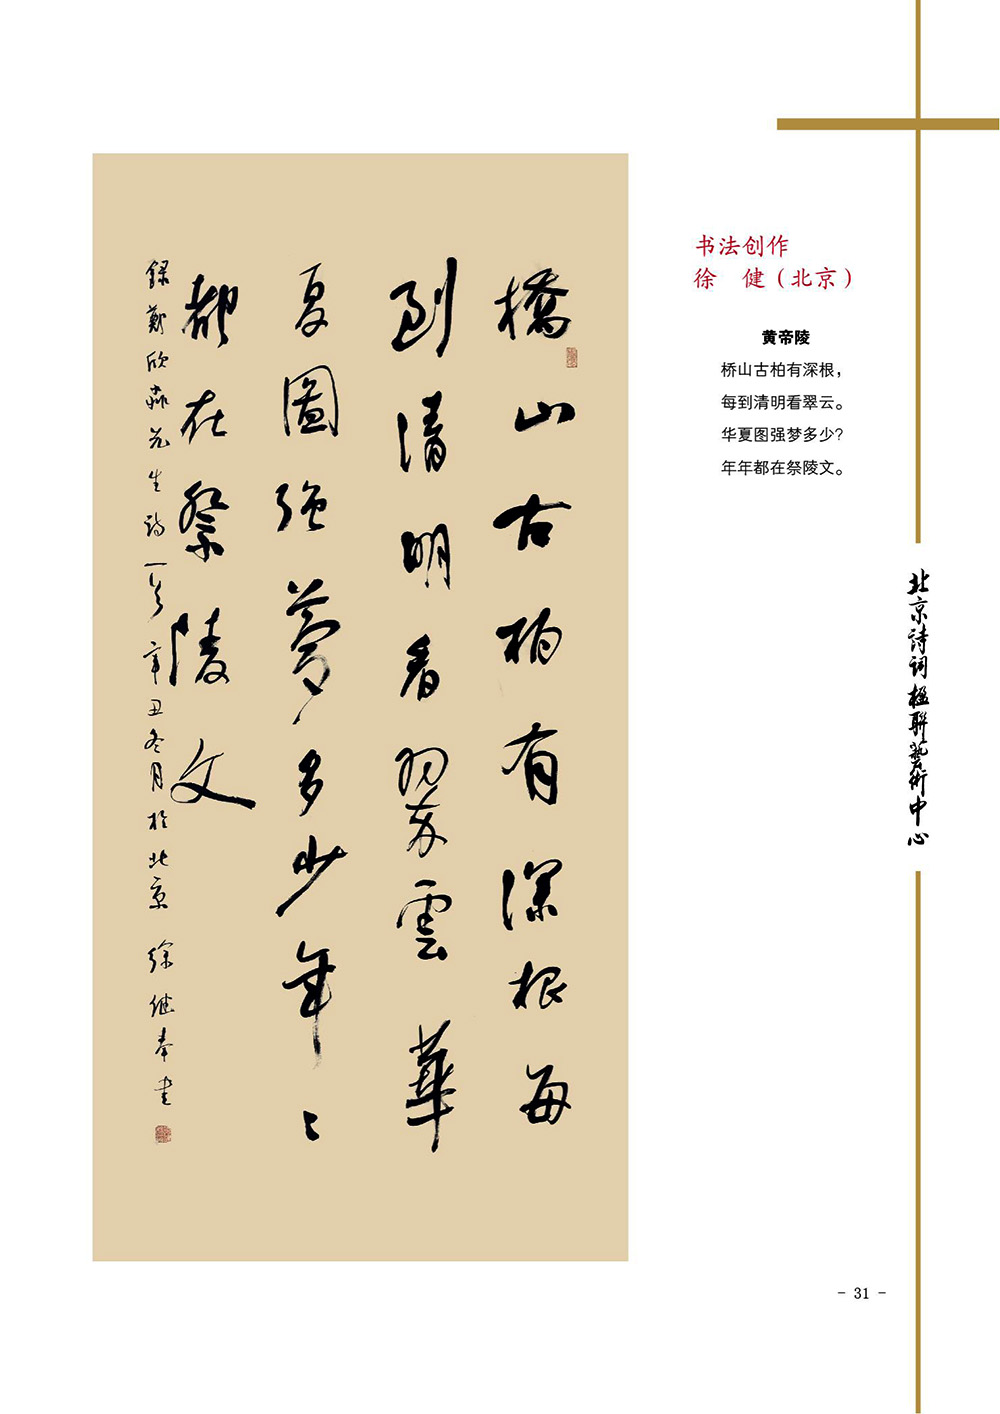 书法创作
徐　健（北京）
黄帝陵
桥山古柏有深根，
每到清明看翠云。
华夏图强梦多少？
年年都在祭陵文。
橋山古柏有深根每
到清明看翠雲華
夏圖强夢多少年〻
都在祭陵文
錄鄭欣淼先生詩一首辛丑冬月於北京 徐健奉書
北京诗词楹聯藝術中心
- 31 -